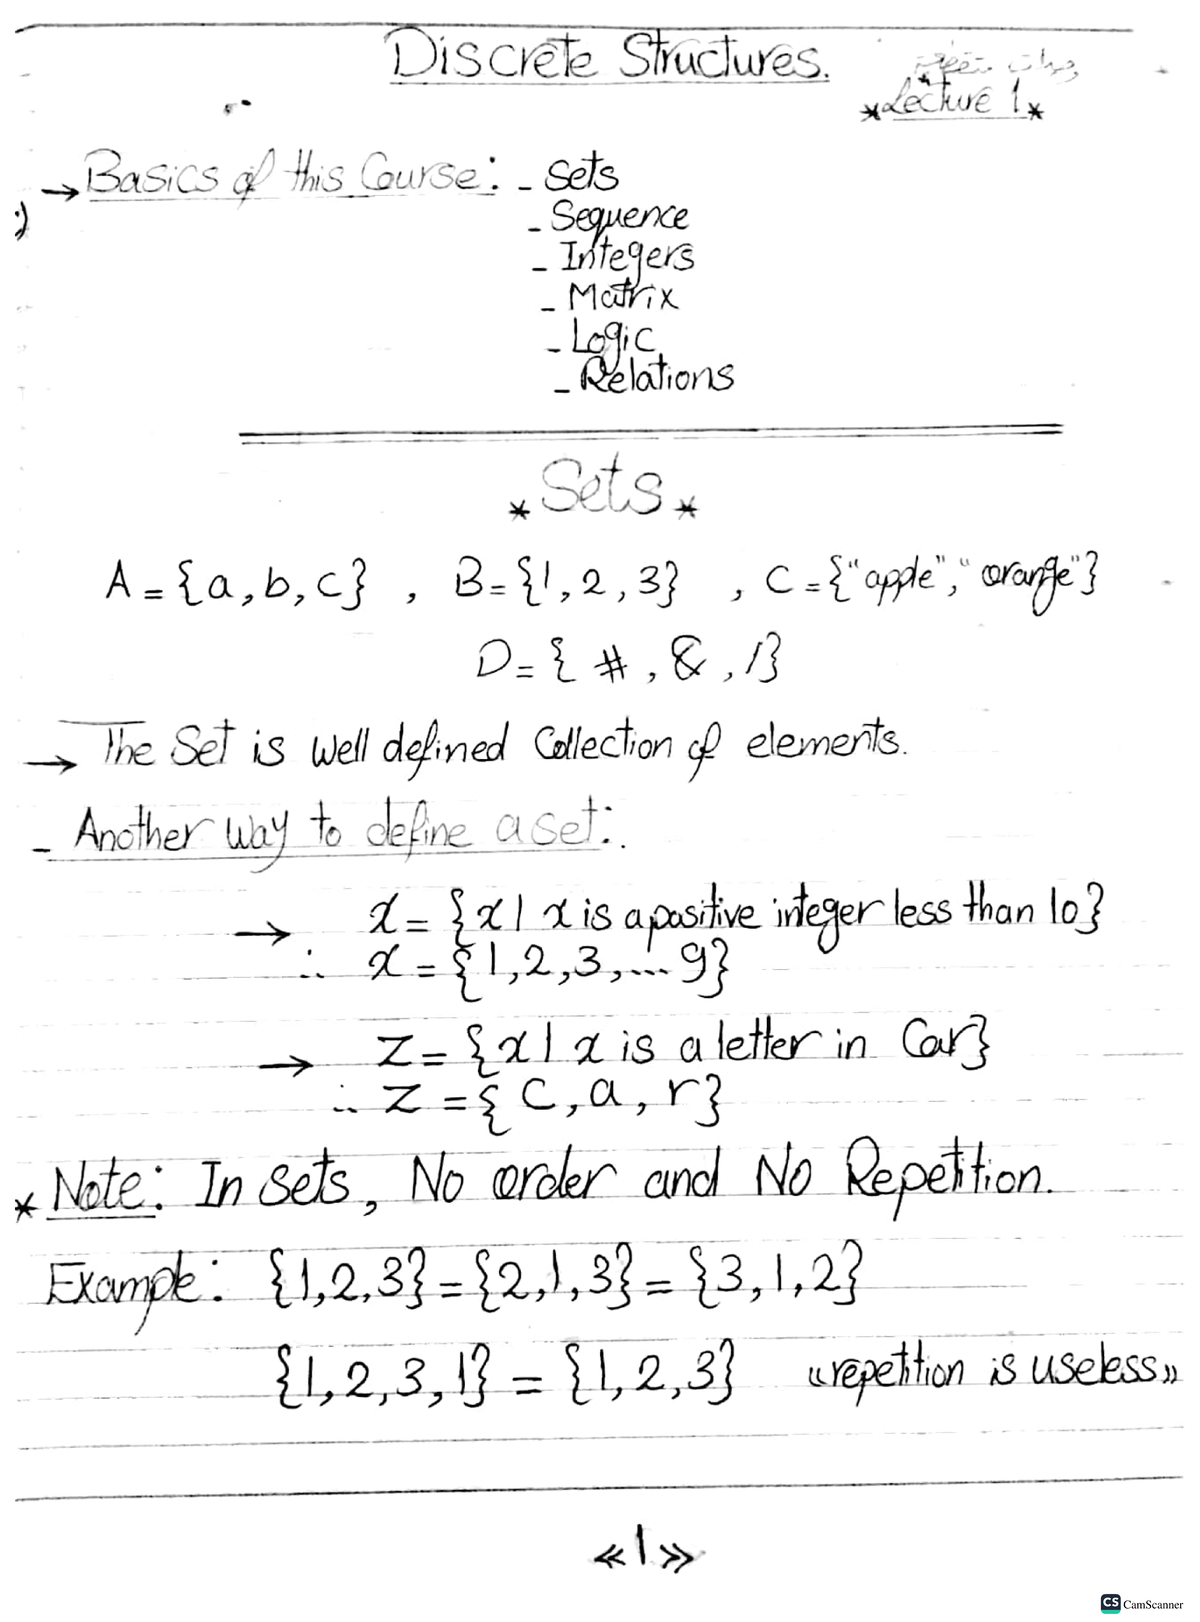 Discrete Structures.
*Lecture 1*
→ Basics of this Course: - Sets
- Sequence
- Integers
- Matrix
- Logic
- Relations
* Sets *
A = {a, b, c} , B = {1, 2, 3} , C = {"apple", "orange"}
D = { #, &, /}
→ The Set is well defined Collection of elements.
- Another way to define a set:.
→ x = {x | x is a positive integer less than 10}
∴ x = {1, 2, 3, ... 9}
→ Z = {x | x is a letter in Car}
∴ Z = {C, a, r}
* Note: In Sets, No order and No Repetition.
Example: {1,2,3} = {2,1,3} = {3,1,2}
{1,2,3,1} = {1,2,3} «repetition is useless»
«1»
CS CamScanner